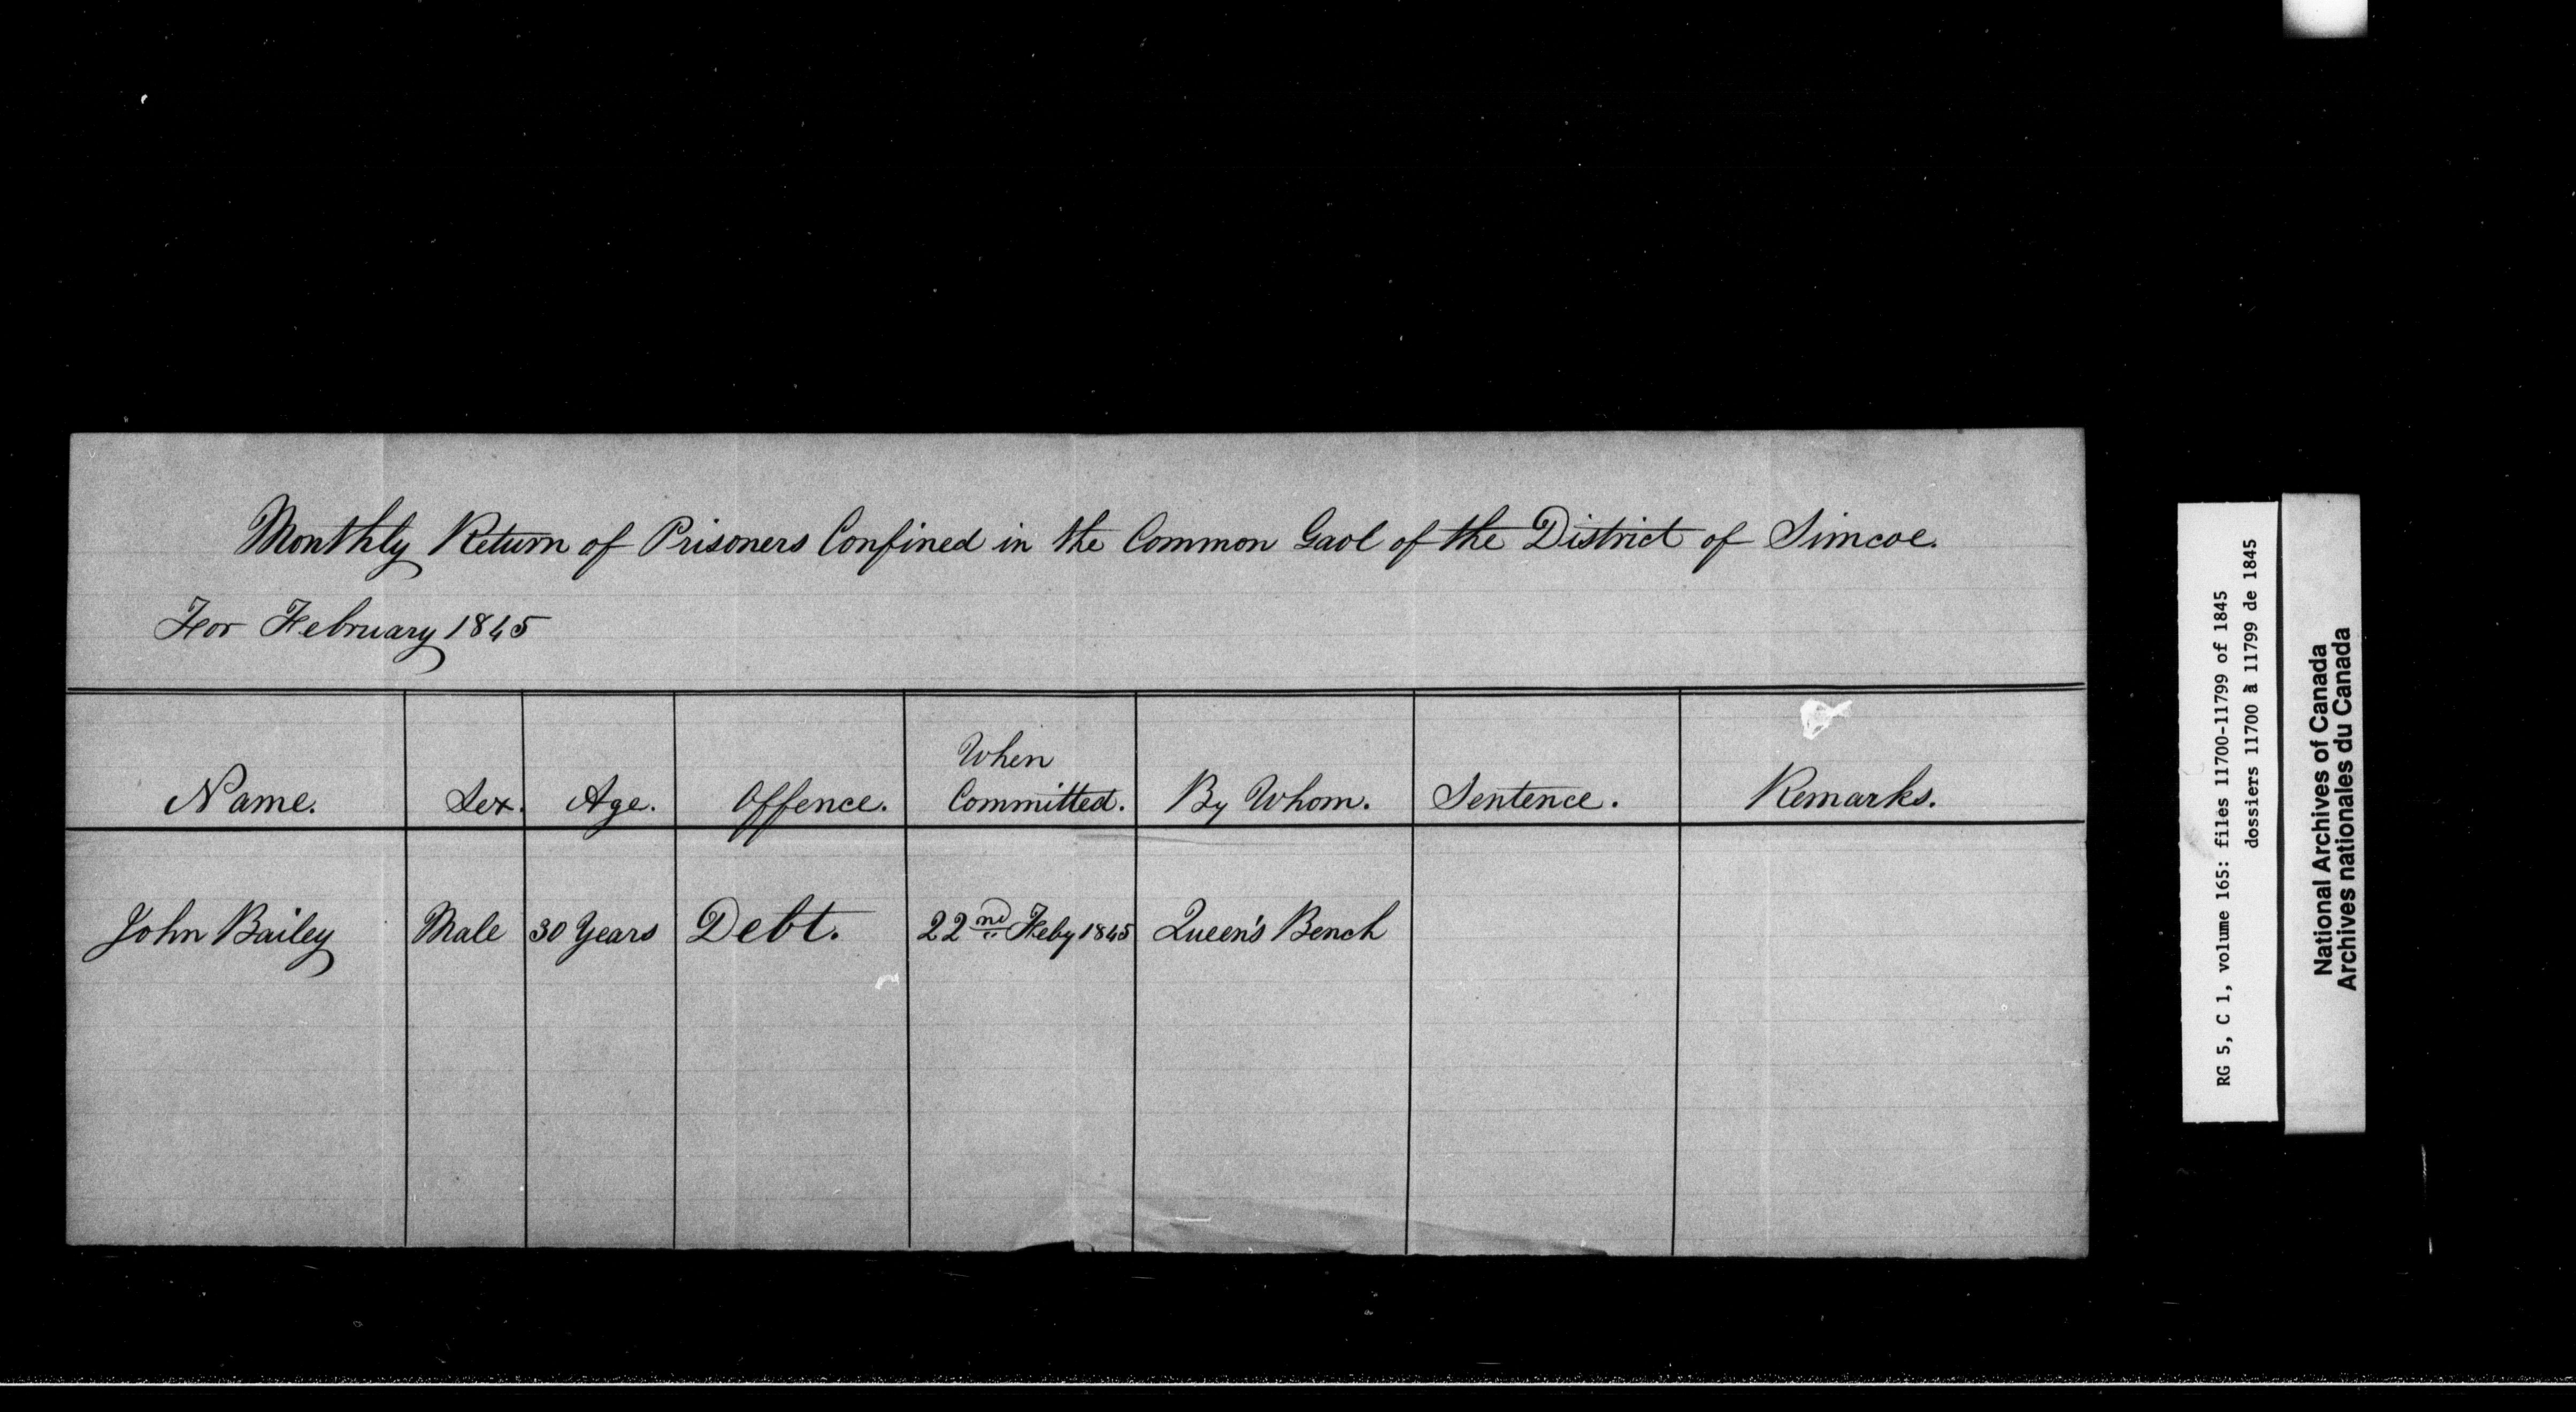 Monthly Return of Prisoners Confined in the Common Gaol of the District of Simcoe.
For February 1845
Name. Sex. Age. Offence. When Committed. By Whom. Sentence. Remarks.
John Bailey Male 30 Years Debt. 22nd Feby 1845 Queen's Bench
RG 5, C 1, volume 165: files 11700-11799 of 1845
dossiers 11700 à 11799 de 1845
National Archives of Canada
Archives nationales du Canada